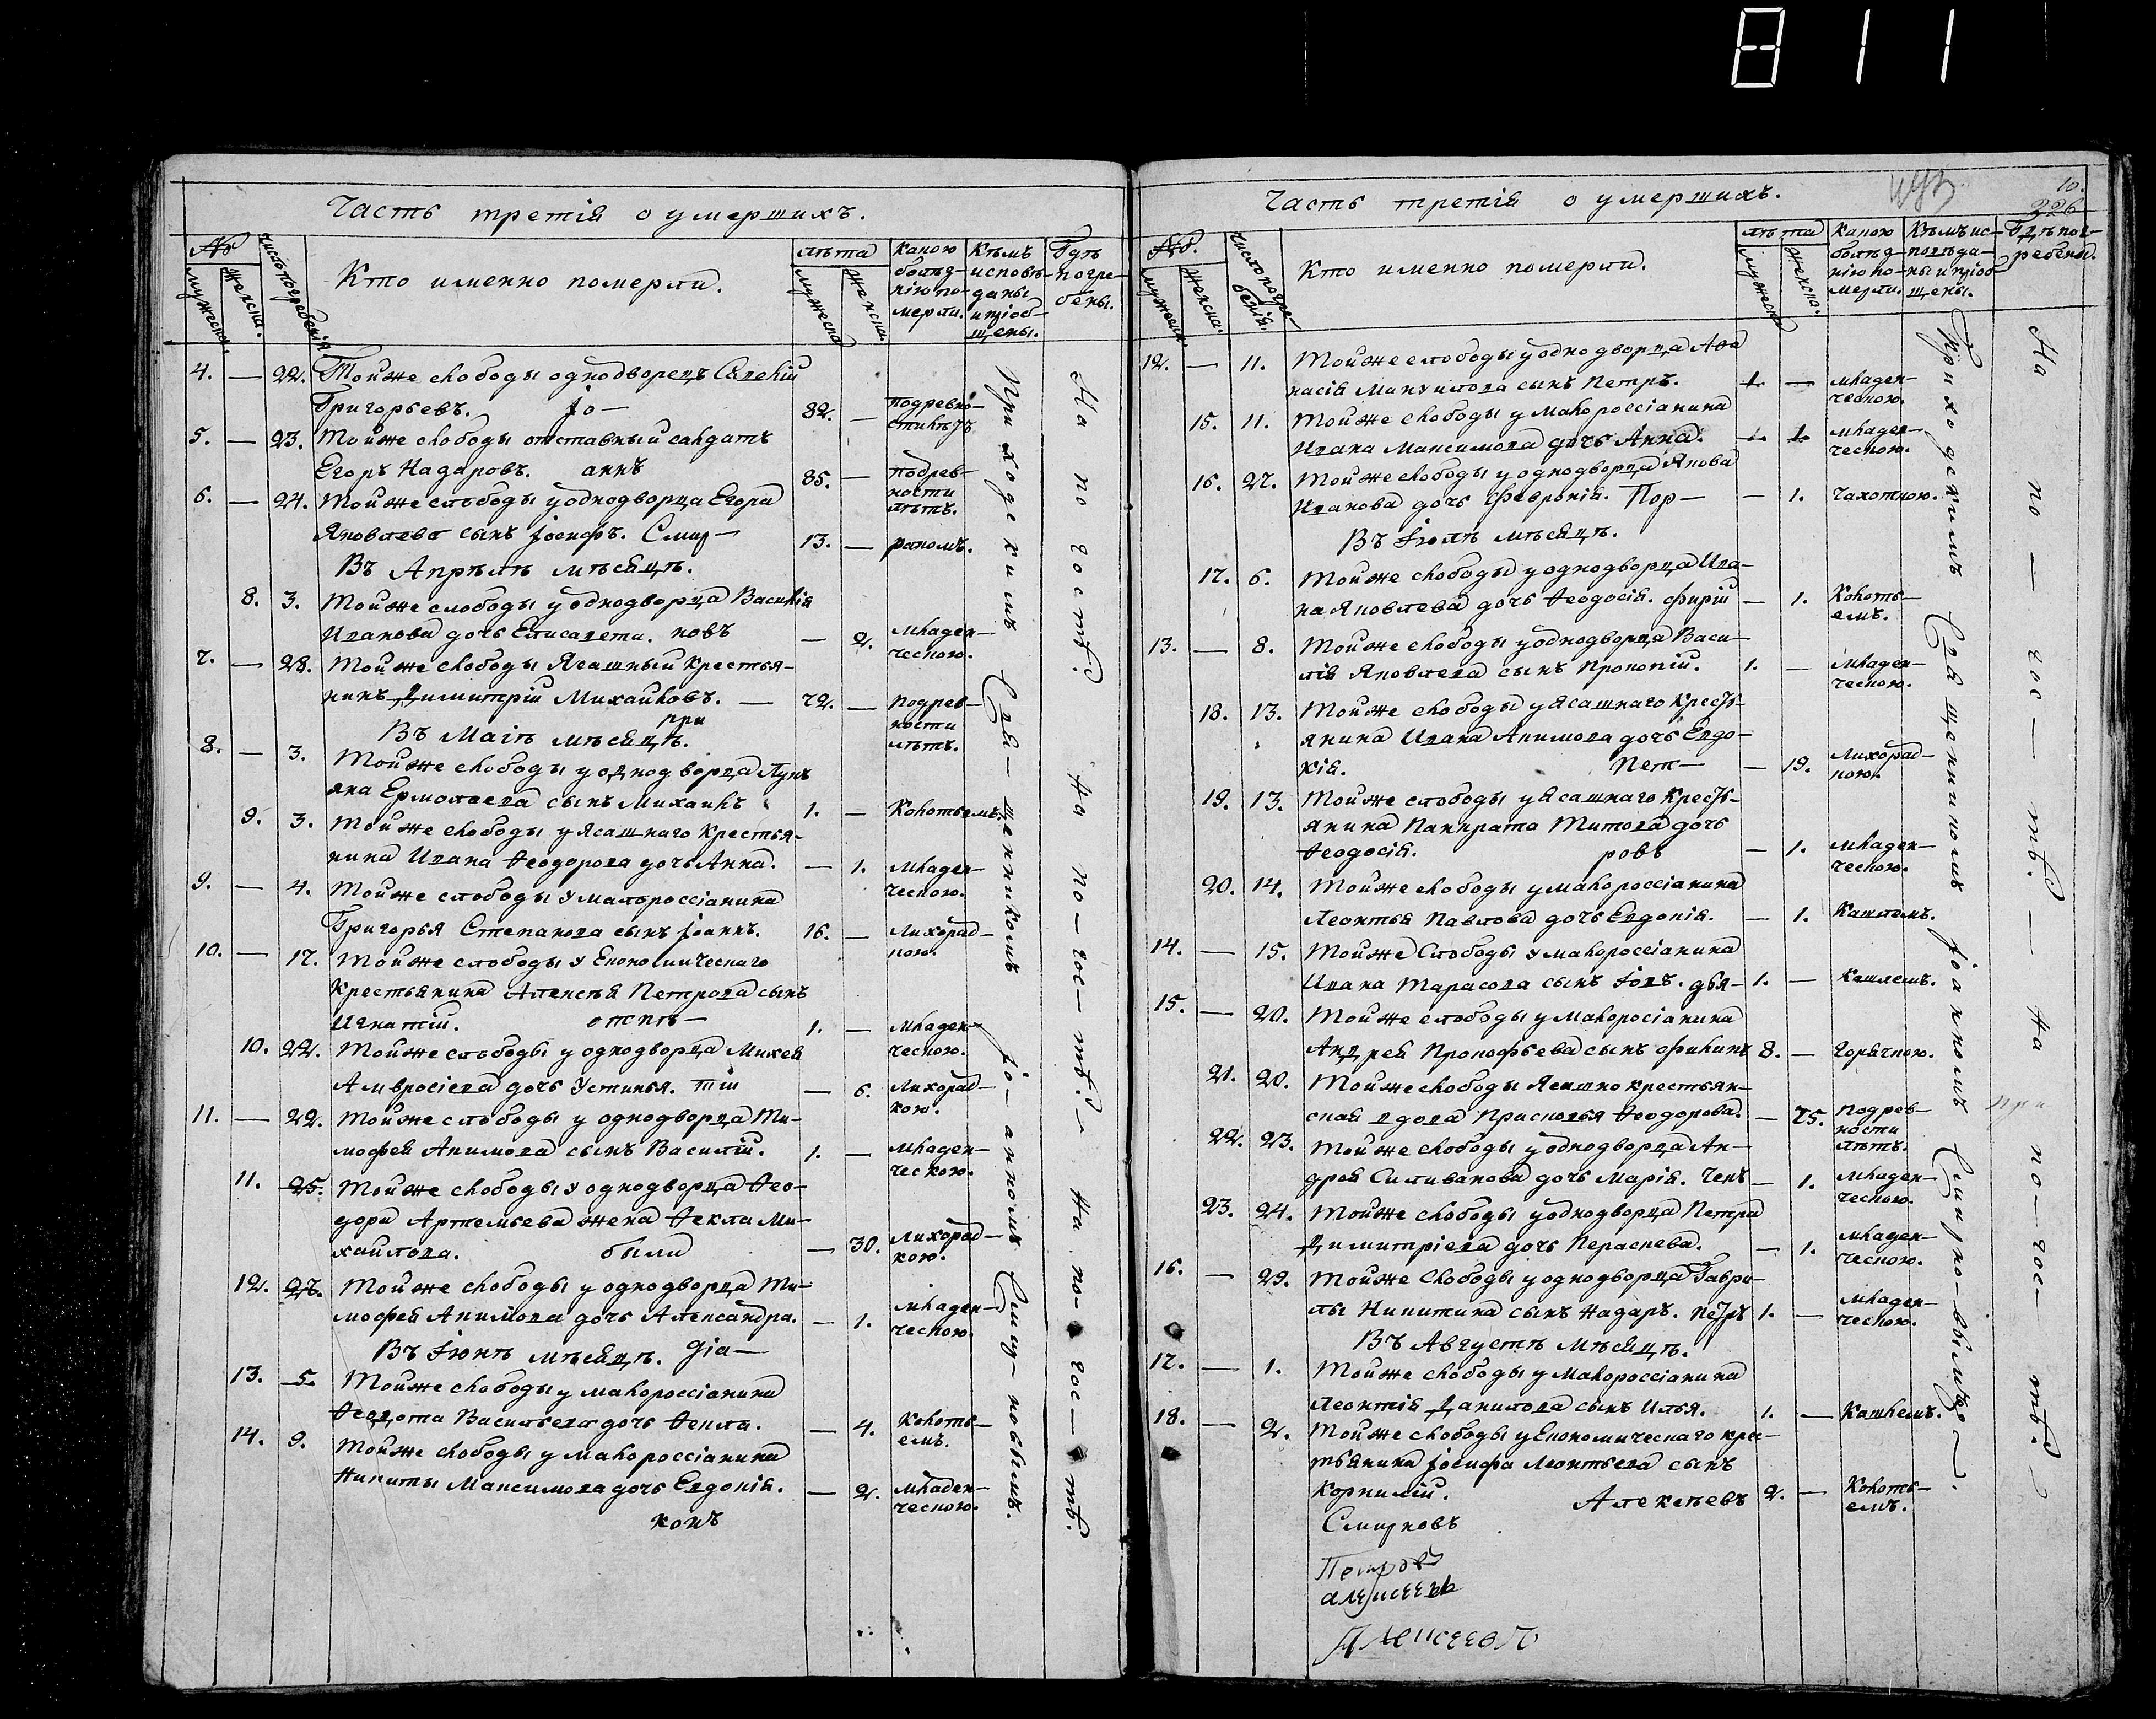 811
Часть третія о умершихъ.
№
мужеска.
женска.
число погребенія
Кто именно померли.
лѣта
мужеска
женска.
какою болѣд-
нію по-
мерли.
Кѣмъ
исповѣ-
даны
и пріоб-
щены.
Гдѣ
погре-
бены.
4. — 22. Тойже слободы однодворецъ Савелій
Григорьевъ. Іо— 82. — подревно-
сти лѣтъ
5. — 23. Тойже слободы отставный салдатъ
Егоръ Назаровъ. аннъ 85. — подрев-
ности
лѣтъ.
6. — 24. Тойже слободы уоднодворца Егора
Яковлева сынъ Іосифъ. Смир— 13. — ракомъ.
Въ Апрѣлѣ мѣсяцѣ.
8. 3. Тойже слободы уоднодворца Василія
Иванова дочь Елисавета. новъ — 2. Младен-
ческою.
7. — 28. Тойже слободы Ясашный крестья-
нинъ Димитрій Михайловъ. — 72. — подрев-
ности
лѣтъ.
Въ Маіѣ мѣсяцѣ. при
8. — 3. Тойже слободы уоднодворца Лукъ
яна Ермолаева сынъ Михаилъ 1. — Колотьемъ.
9. 3. Тойже слободы уЯсашнаго крестья-
нина Ивана Ѳеодорова дочь Анна. — 1. Младен-
ческою.
9. — 4. Тойже слободы Умалороссіанина
Григорья Степанова сынъ Іоаннъ. 16. — Лихорад-
кою.
10. — 17. Тойже слободы У Економическаго
Крестьянина Алексѣя Петрова сынъ
Игнатій. отпѣ— 1. — Младен-
ческою.
10. 22. Тойже слободы у однодворца Михея
Амвросіева дочь Устинья. тіи — 6. Лихорад-
кою.
11. — 22. Тойже слободы у однодворца Ти-
мофея Акимова сынъ Василій. 1. — Младен-
ческою.
11. 25. Тойже слободы У однодворца Ѳео-
дора Артемьева жена Ѳекла Ми-
хайлова. были — 30. Лихорад-
кою.
12. 27. Тойже слободы у однодворца Ти-
мофея Акимова дочь Александра. — 1. Младен-
ческою.
Въ Іюнѣ мѣсяцѣ. діа—
13. 5. Тойже слободы у малороссіанина
Ѳедота Васильева дочь Ѳекла. — 4. Колоть-
емъ.
14. 9. Тойже слободы у малороссіанина
Никиты Максимова дочь Евдокія. — 2. младен-
ческою.
конъ
Приходскимъ Свя-щенникомъ Іо-анномъ Смир-новымъ.
На погостѣ. На по-гос-тѣ. На по-гос-тѣ.
Часть третія о умершихъ.
10.
326
№.
мужеска.
женска.
число погре-
бенія.
Кто именно померли.
лѣта
мужеска
женска.
какою
болѣд-
нію по-
мерли.
Кѣмъ ис-
повѣда-
ны и пріоб-
щены.
Гдѣ пог-
ребены.
12. — 11. Тойже слободы уоднодворца Аѳа
насія Мануилова сынъ Петръ. 1. — младен-
ческою.
15. 11. Тойже слободы у малороссіанина
Ивана Максимова дочь Анна. — 1. младен-
ческою.
16. 27. Тойже слободы уоднодворца Якова
Иванова дочь Февронія. Пор— — 1. Чахоткою.
Въ Іюлѣ мѣсяцѣ.
17. 6. Тойже слободы уоднодворца Ива-
на Яковлева дочь Ѳеодосія. фирій — 1. Колоть-
емъ.
13. — 8. Тойже слободы уоднодворца Васи-
лія Яковлева сынъ Прокопій. 1. — Младен-
ческою.
18. 13. Тойже слободы уЯсашнаго Кресть-
янина Ивана Акимова дочь Евдо-
кія. Пет— — 19. Лихорад-
кою.
19. 13. Тойже слободы уЯсашнаго Кресть-
янина Панкрата Титова дочь
Ѳеодосія. ровъ — 1. младен-
ческою.
20. 14. Тойже слободы умалороссіанина
Леонтья Павлова дочь Евдокія. — 1. Кашлемъ.
14. — 15. Тойже Слободы умалороссіанина
Ивана Тарасова сынъ Іовъ. дья— 1. — Кашлемъ.
15. — 20. Тойже слободы умалоросіанина
Андрея Прокофьева сынъ Филипъ 8. — Горячкою.
21. 20. Тойже слободы Ясашно крестьян-
ская вдова Прасковья Ѳеодорова. — 75. подрев-
ности
лѣтъ.
22. 23. Тойже слободы уоднодворца Ан-
дрея Силиванова дочь Марія. Чекъ — 1. младен-
ческою.
23. 24. Тойже слободы уоднодворца Петра
Димитріева дочь Параскева. — 1. младен-
ческою.
16. — 29. Тойже Слободы уоднодворца Гаври-
лы Никитина сынъ Назаръ. Петръ 1. — младен-
ческою.
Въ Августѣ Мѣсяцѣ.
17. — 1. Тойже слободы у малороссіанина
Леонтія Данилова сынъ Илья. 1. — Кашлемъ.
18. — 2. Тойже слободы уЕкономическаго крес-
тьянина Іосифа Леонтьева сынъ
Корнилій. Алексѣевъ 2. — Колоть-
емъ.
Смирновъ
Петровъ
алексеевъ
Приходскимъ Священникомъ Іоанномъ Смирно-вымъ.
На по-гос-тѣ. На по-гос-тѣ.
при